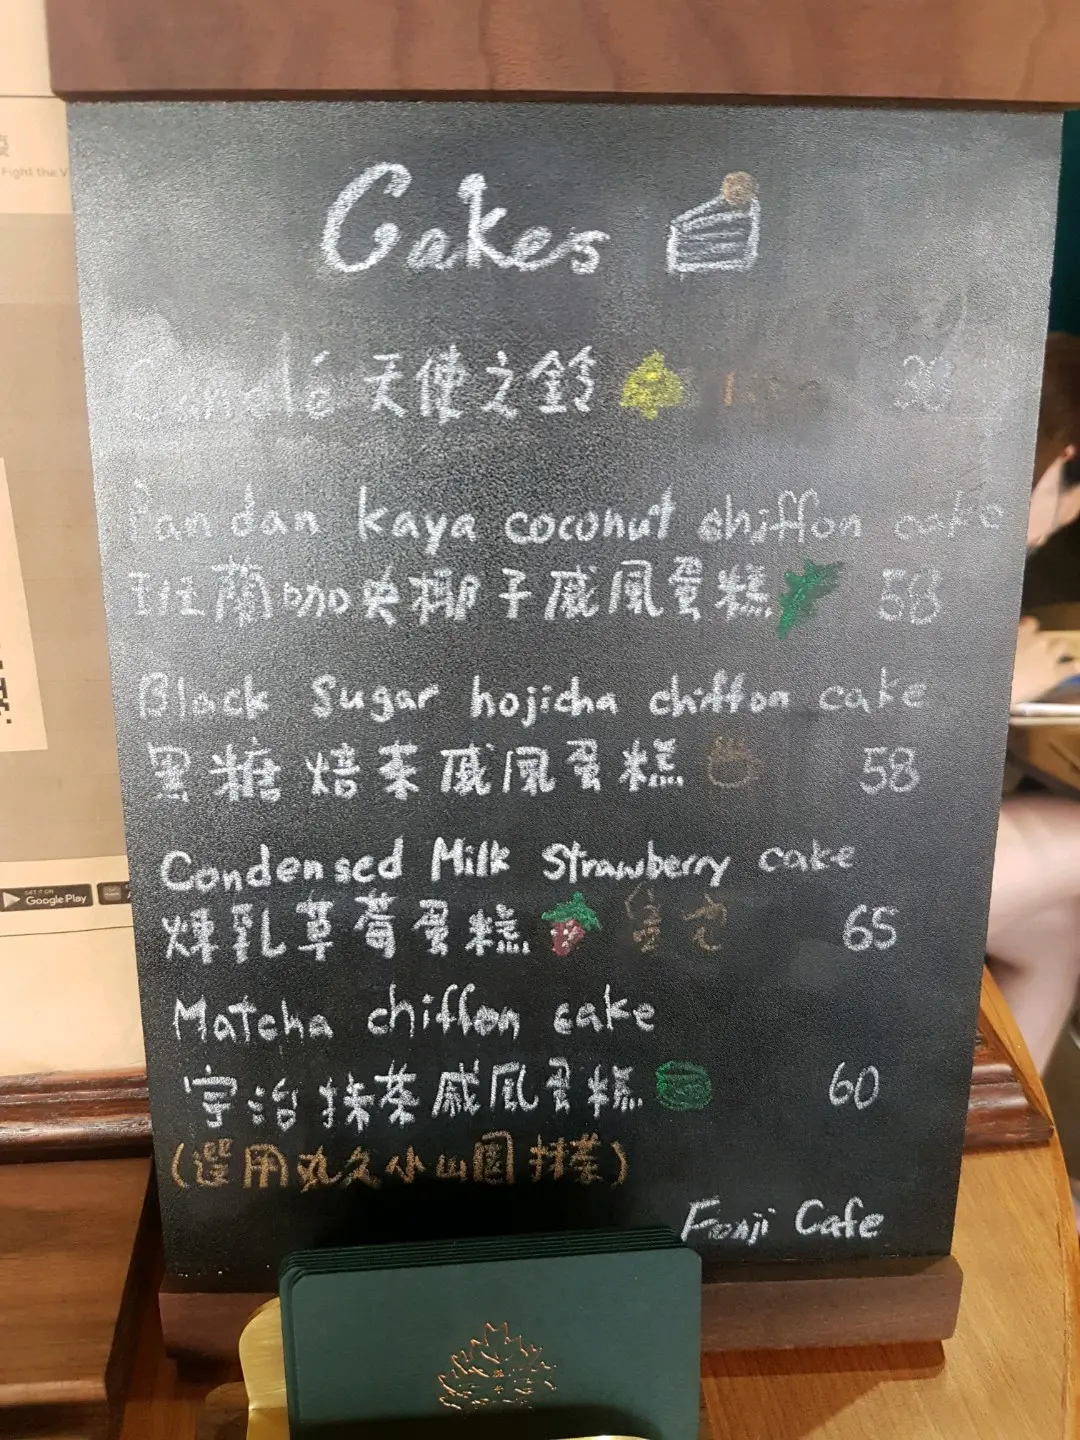 Fight the V
Cakes
Canelé 天使之鈴
Pandan kaya coconut chiffon cake
班蘭咖央椰子戚風蛋糕 58
Black Sugar hojicha chiffon cake
黑糖焙茶戚風蛋糕 58
Condensed Milk Strawberry cake
煉乳草莓蛋糕 65
Matcha chiffon cake
宇治抹茶戚風蛋糕 60
(選用丸久小山園抹茶)
Cafe
GET IT ON
Google Play